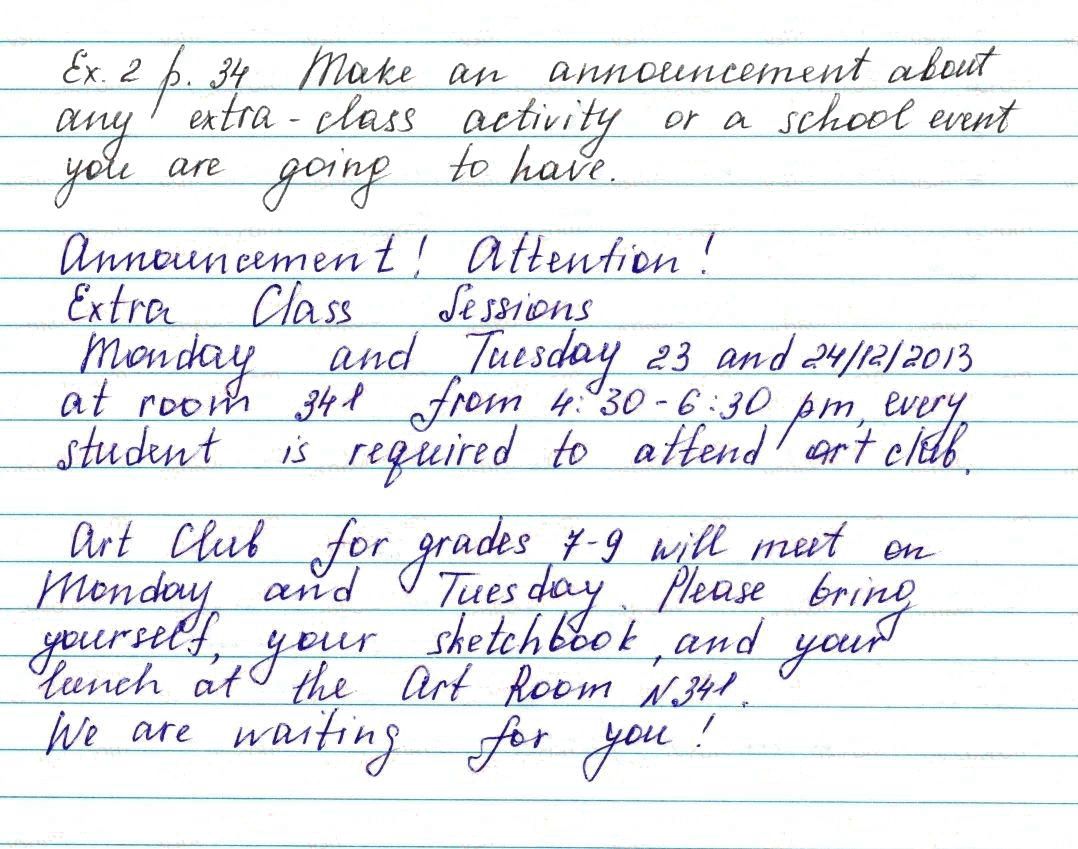 Ex. 2 p. 34 Make an announcement about
any extra-class activity or a school event
you are going to have.
Announcement! Attention!
Extra Class Sessions
Monday and Tuesday 23 and 24/12/2013
at room 341 from 4:30-6:30 pm, every
student is required to attend art club.
Art Club for grades 7-9 will meet on
Monday and Tuesday. Please bring
yourself, your sketchbook, and your
lunch at the Art Room N341.
We are waiting for you!